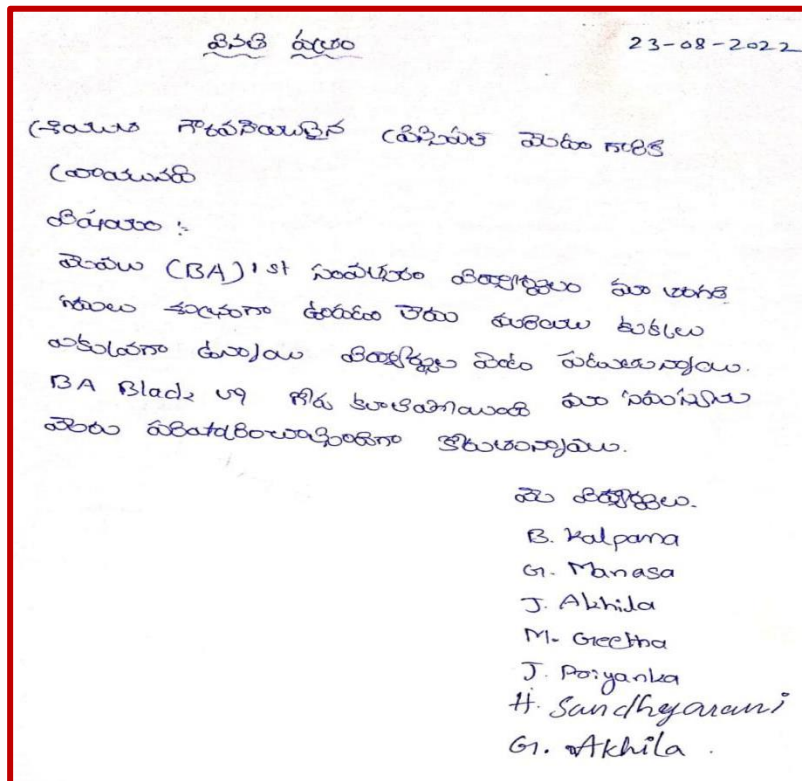 వినతి పత్రం 23-08-2022
శ్రీయుత గౌరవనీయులైన ప్రిన్సిపల్ మేడం గారికి
వ్రాయునది
విషయం :
మేము (BA) 1st సంవత్సరం విద్యార్థులం మా తరగతి
గదులు శుభ్రంగా ఉండడం లేదు మరియు కుక్కలు
ఎక్కువగా ఉన్నాయి విద్యార్థుల వెంట పడుతున్నాయి.
BA Black లో గోడ కూలిపోయింది మా సమస్యను
మీరు పరిష్కరించాల్సిందిగా కోరుతున్నాము.
మీ విద్యార్థులు.
B. Kalpana
G. Manasa
J. Akhila
M. Geetha
J. Poiyanka
H. Sandhyarani
G. Akhila.